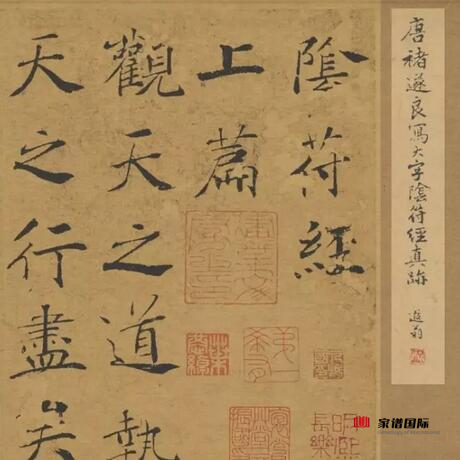 唐褚遂良寫大字陰符經真跡
遐翁
陰符經
上篇
觀天之道執
天之行盡矣
家谱国际